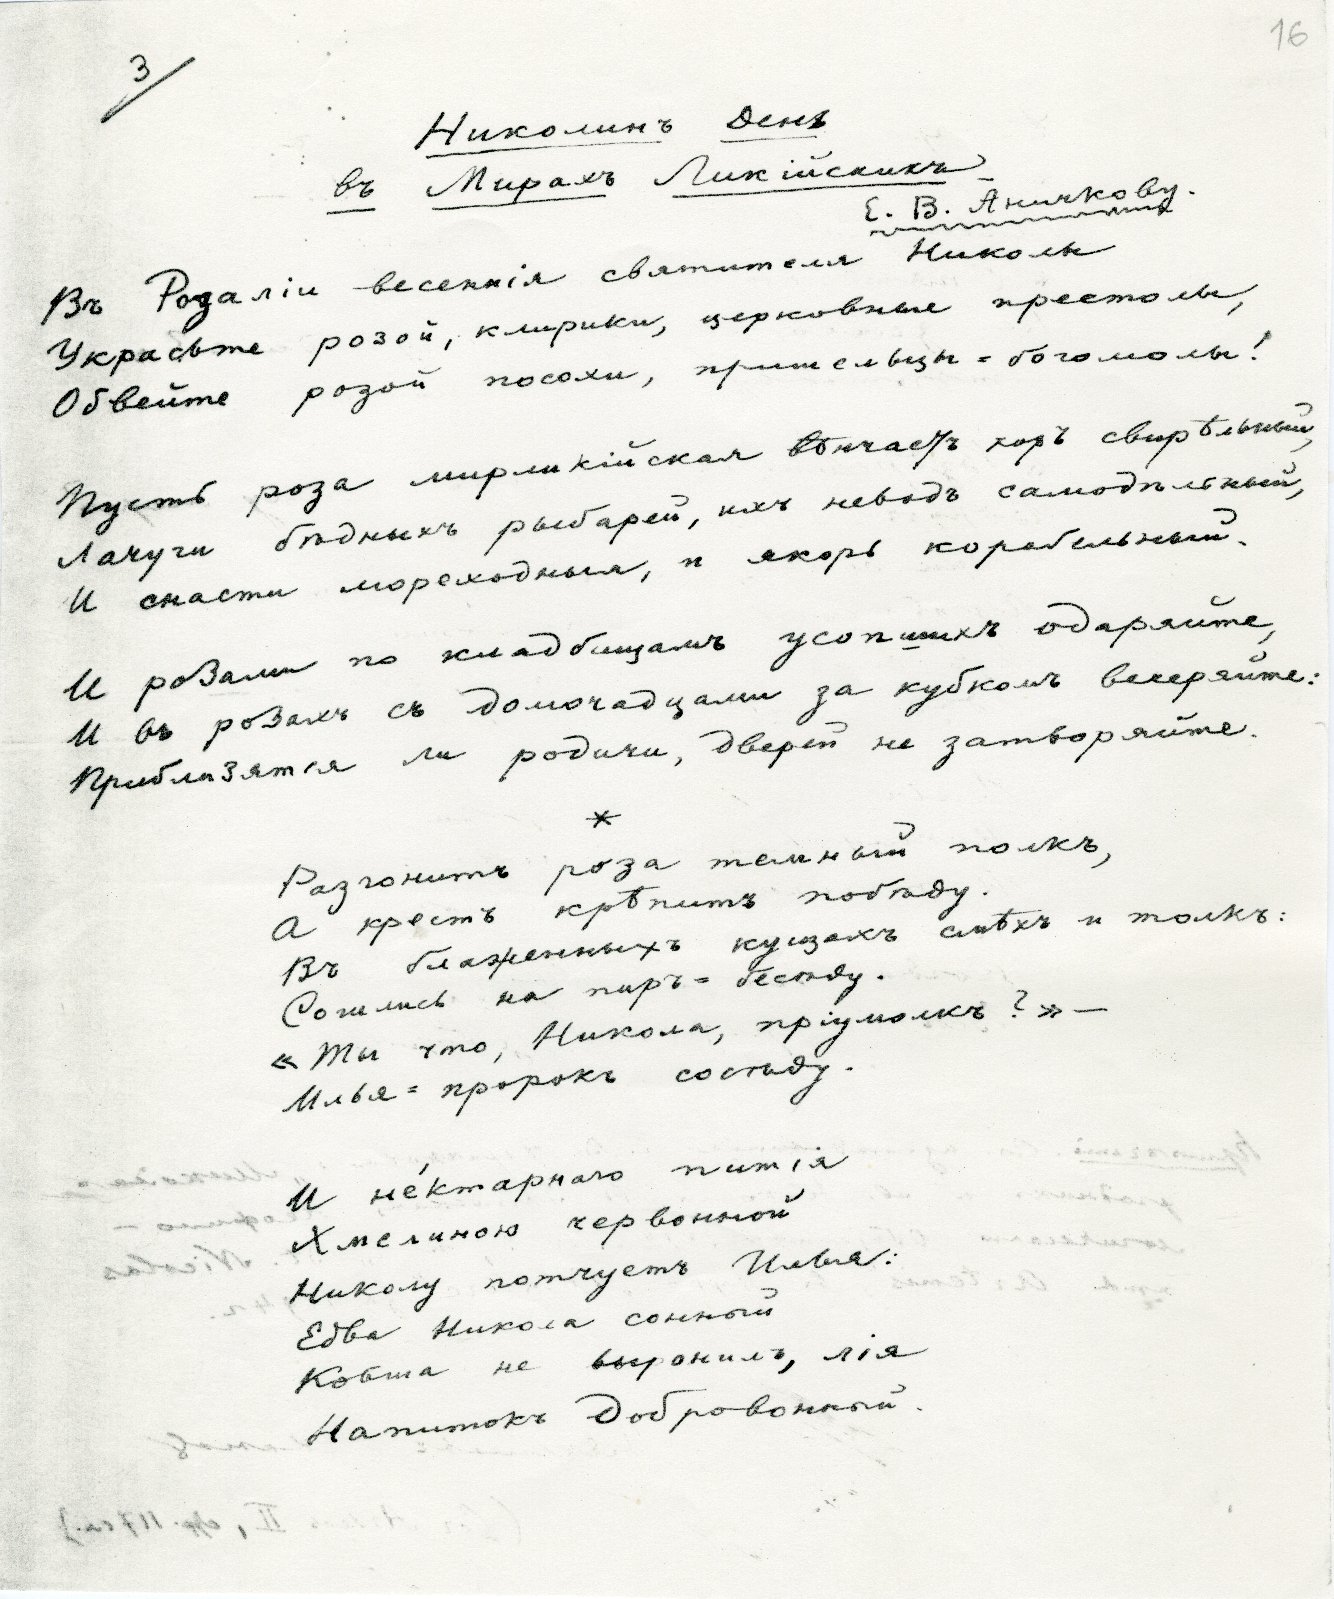 16
3/
Николинъ день
въ Мирахъ Ликійскихъ
Е. В. Аничкову.
Въ Розаліи весеннія святителя Николы
Украсьте розой, клирики, церковные престолы,
Обвейте розой посохи, пришельцы-богомолы!
Пусть роза мирликійская вѣнчаетъ хоръ свирѣльный,
Лачуги бѣдныхъ рыбарей, ихъ неводъ самодѣльный,
И снасти мореходныя, и якорь корабельный.
И розами по кладбищамъ усопшихъ одаряйте,
И въ розахъ съ домочадцами за кубкомъ вечеряйте:
Приблизятся ли родичи, дверей не затворяйте.
*
Разгонитъ роза темный полкъ,
А крестъ крѣпитъ побѣду.
Въ блаженныхъ кущахъ смѣхъ и толкъ:
Сошлись на пиръ-бесѣду.
«Ты что, Никола, пріумолкъ?» —
Илья-пророкъ сосѣду.
И не́ктарнаго питія
Хмелиною червонной
Николу потчуетъ Илья:
Едва Никола сонный
Ковша не выронилъ, лія
Напитокъ добровонный.